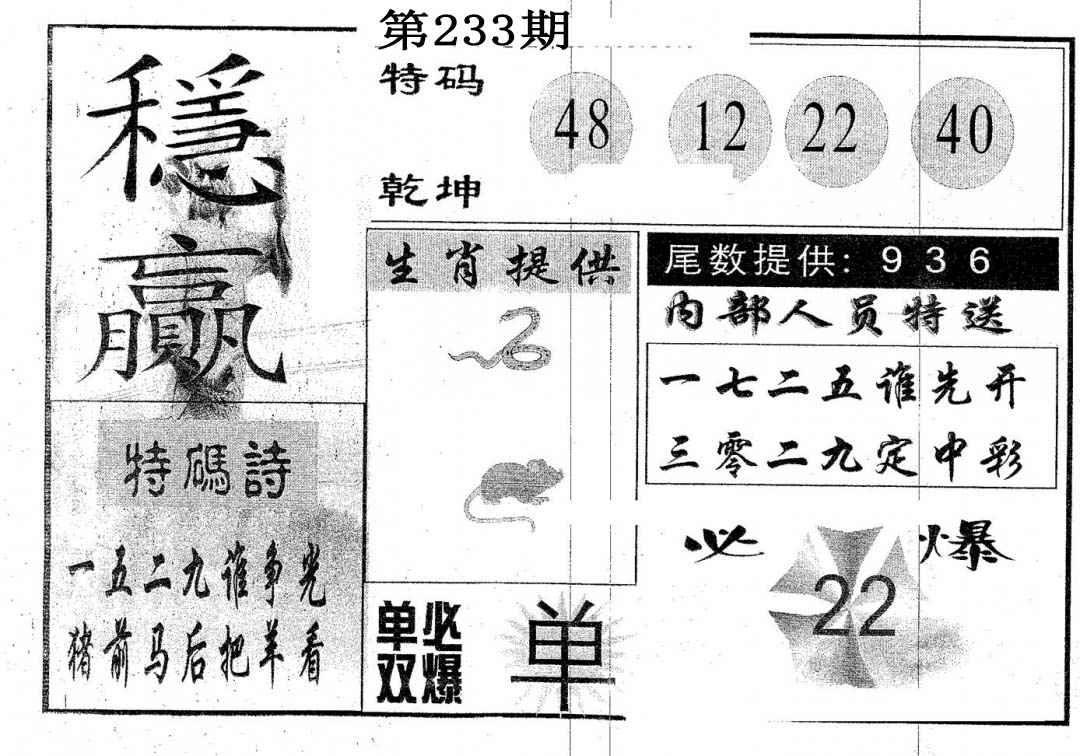 第233期
穩
赢
特码
乾坤
48 12 22 40
生肖提供
尾数提供: 9 3 6
内部人员特送
一七二五谁先开
三零二九定中彩
特碼詩
一五二九谁争光
猪前马后把羊看
单双
必爆
单
必 22 爆